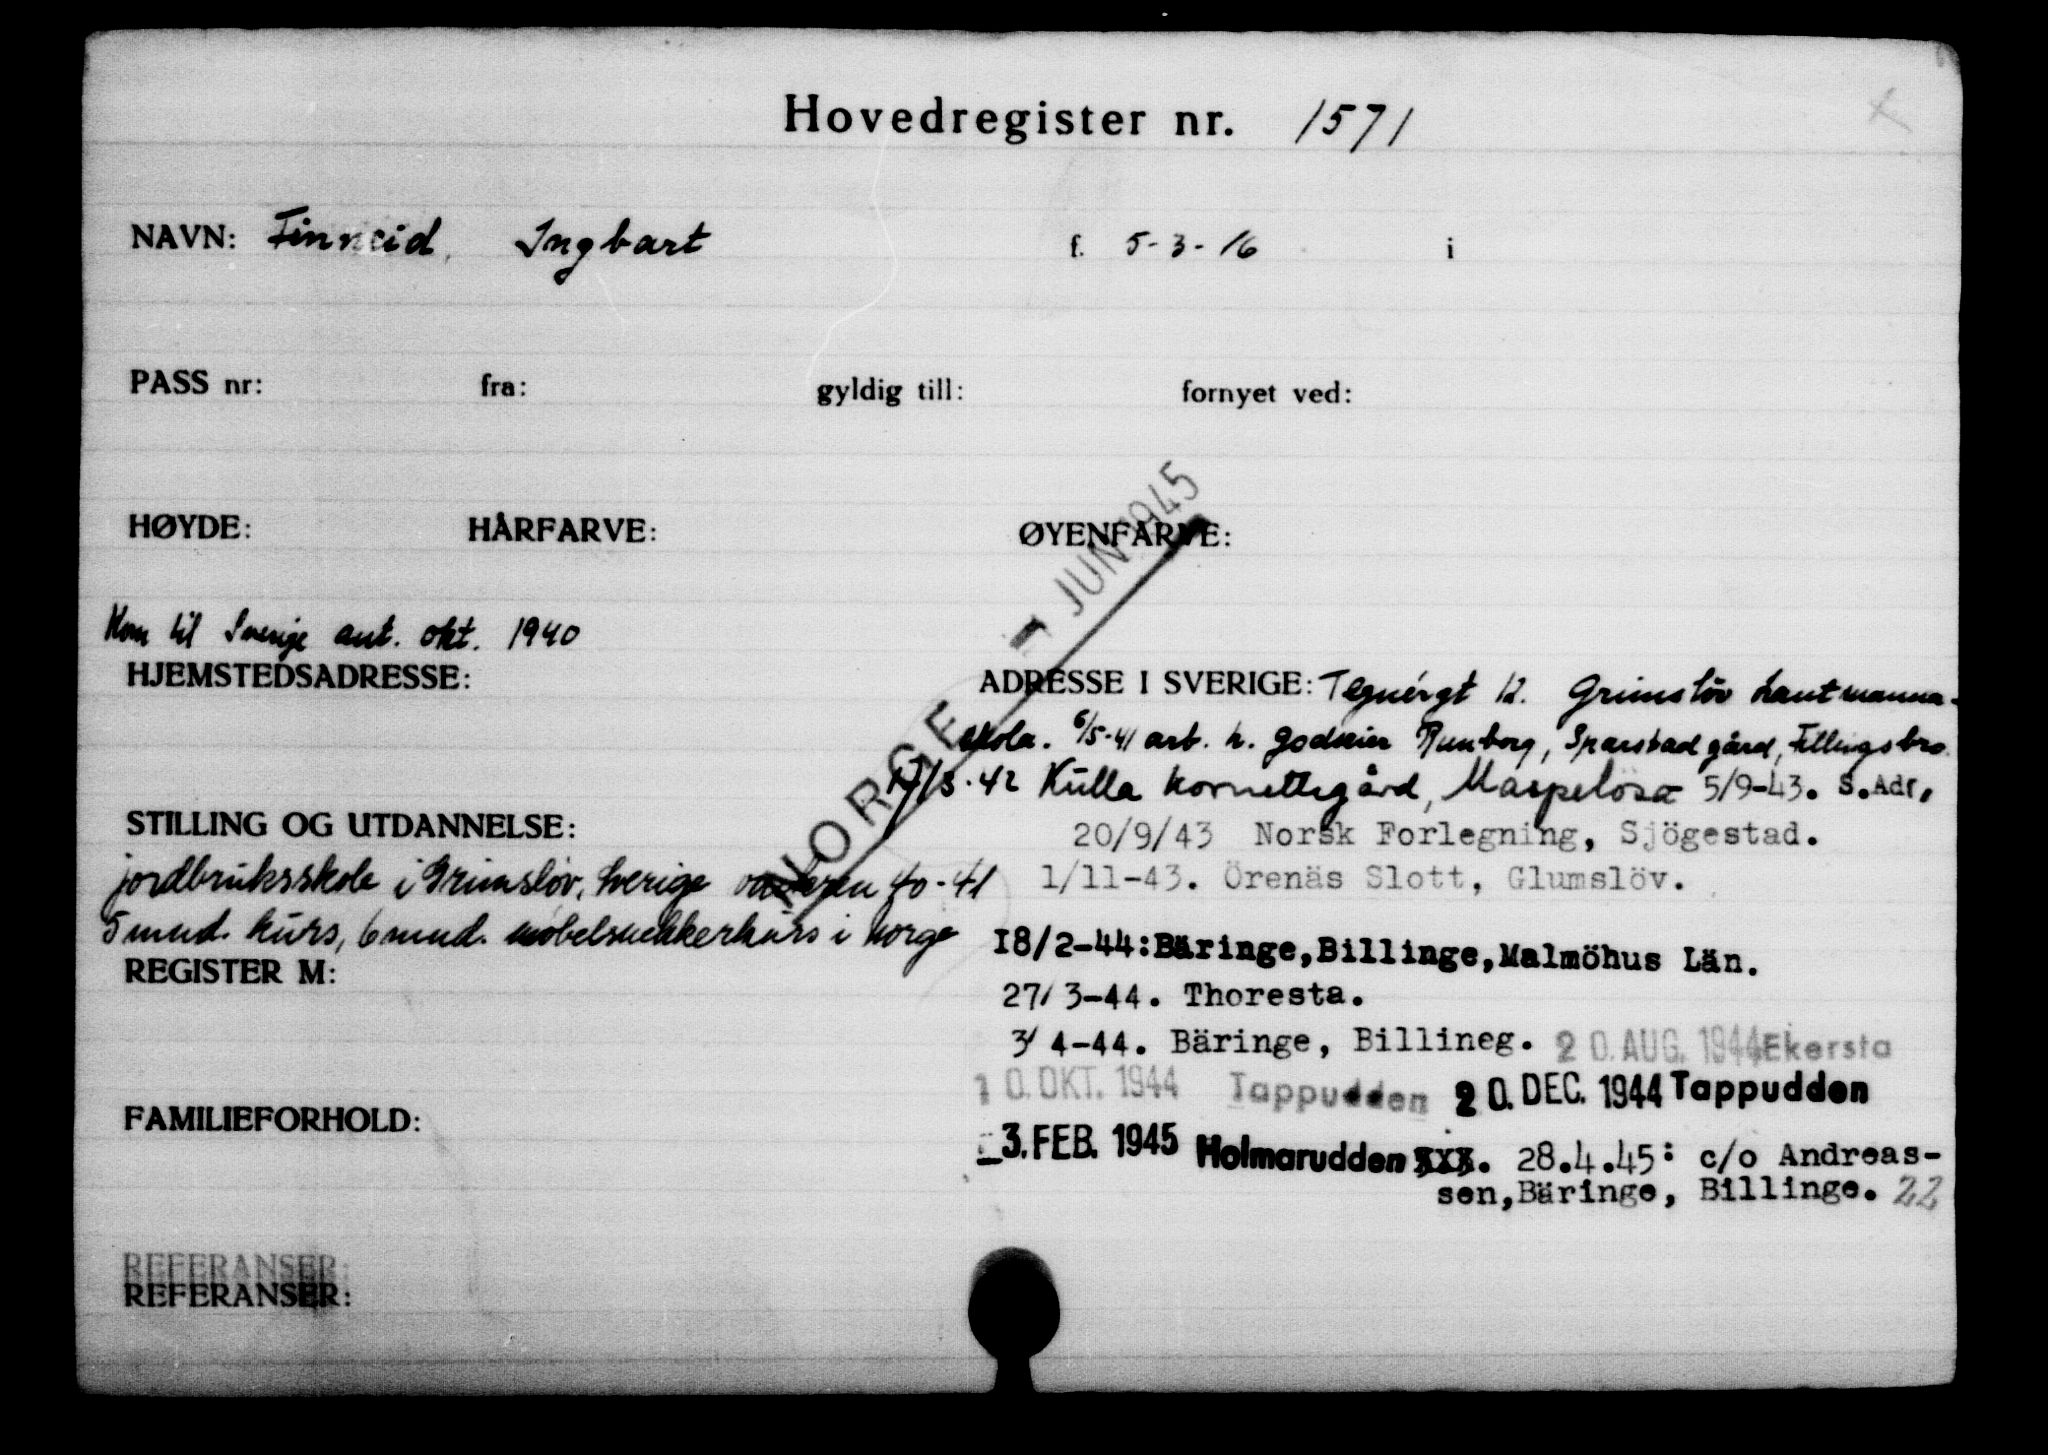 Hovedregister nr. 1571
NAVN: Finneid, Ingbart f. 5-3-16 i
PASS nr: fra: gyldig till: fornyet ved:
HØYDE: HÅRFARVE: ØYENFARVE:
Kom til Sverige ant. okt. 1940
HJEMSTEDSADRESSE:
NORGE - JUN 1945
ADRESSE I SVERIGE: Tegnérgt 12. Grimslöv Lantmanna-
skola. 6/5-41 arb. h. godseier Runborg, Sparstad gård, Fellingsbro.
17/3-42 Kulla Kornettsgård, Maspelösa 5/9-43. S.Adr,
20/9/43 Norsk Forlegning, Sjögestad.
1/11-43. Örenäs Slott, Glumslöv.
18/2-44:Bäringe,Billinge,Malmöhus Län.
27/3-44. Thoresta.
3/4-44. Bäringe, Billineg. 20. AUG. 1944 Ekersta
10. OKT. 1944 Tappudden 20. DEC. 1944 Tappudden
-3. FEB. 1945 Holmarudden xxx. 28.4.45: c/o Andreas-
sen,Bäringe, Billinge. 22
STILLING OG UTDANNELSE:
jordbruksskole i Grimslöv, Sverige vinteren 40-41
5 mnd. kurs, 6 mnd. møbelsnekkerkurs i Norge
REGISTER M:
FAMILIEFORHOLD:
REFERANSER:
REFERANSER: